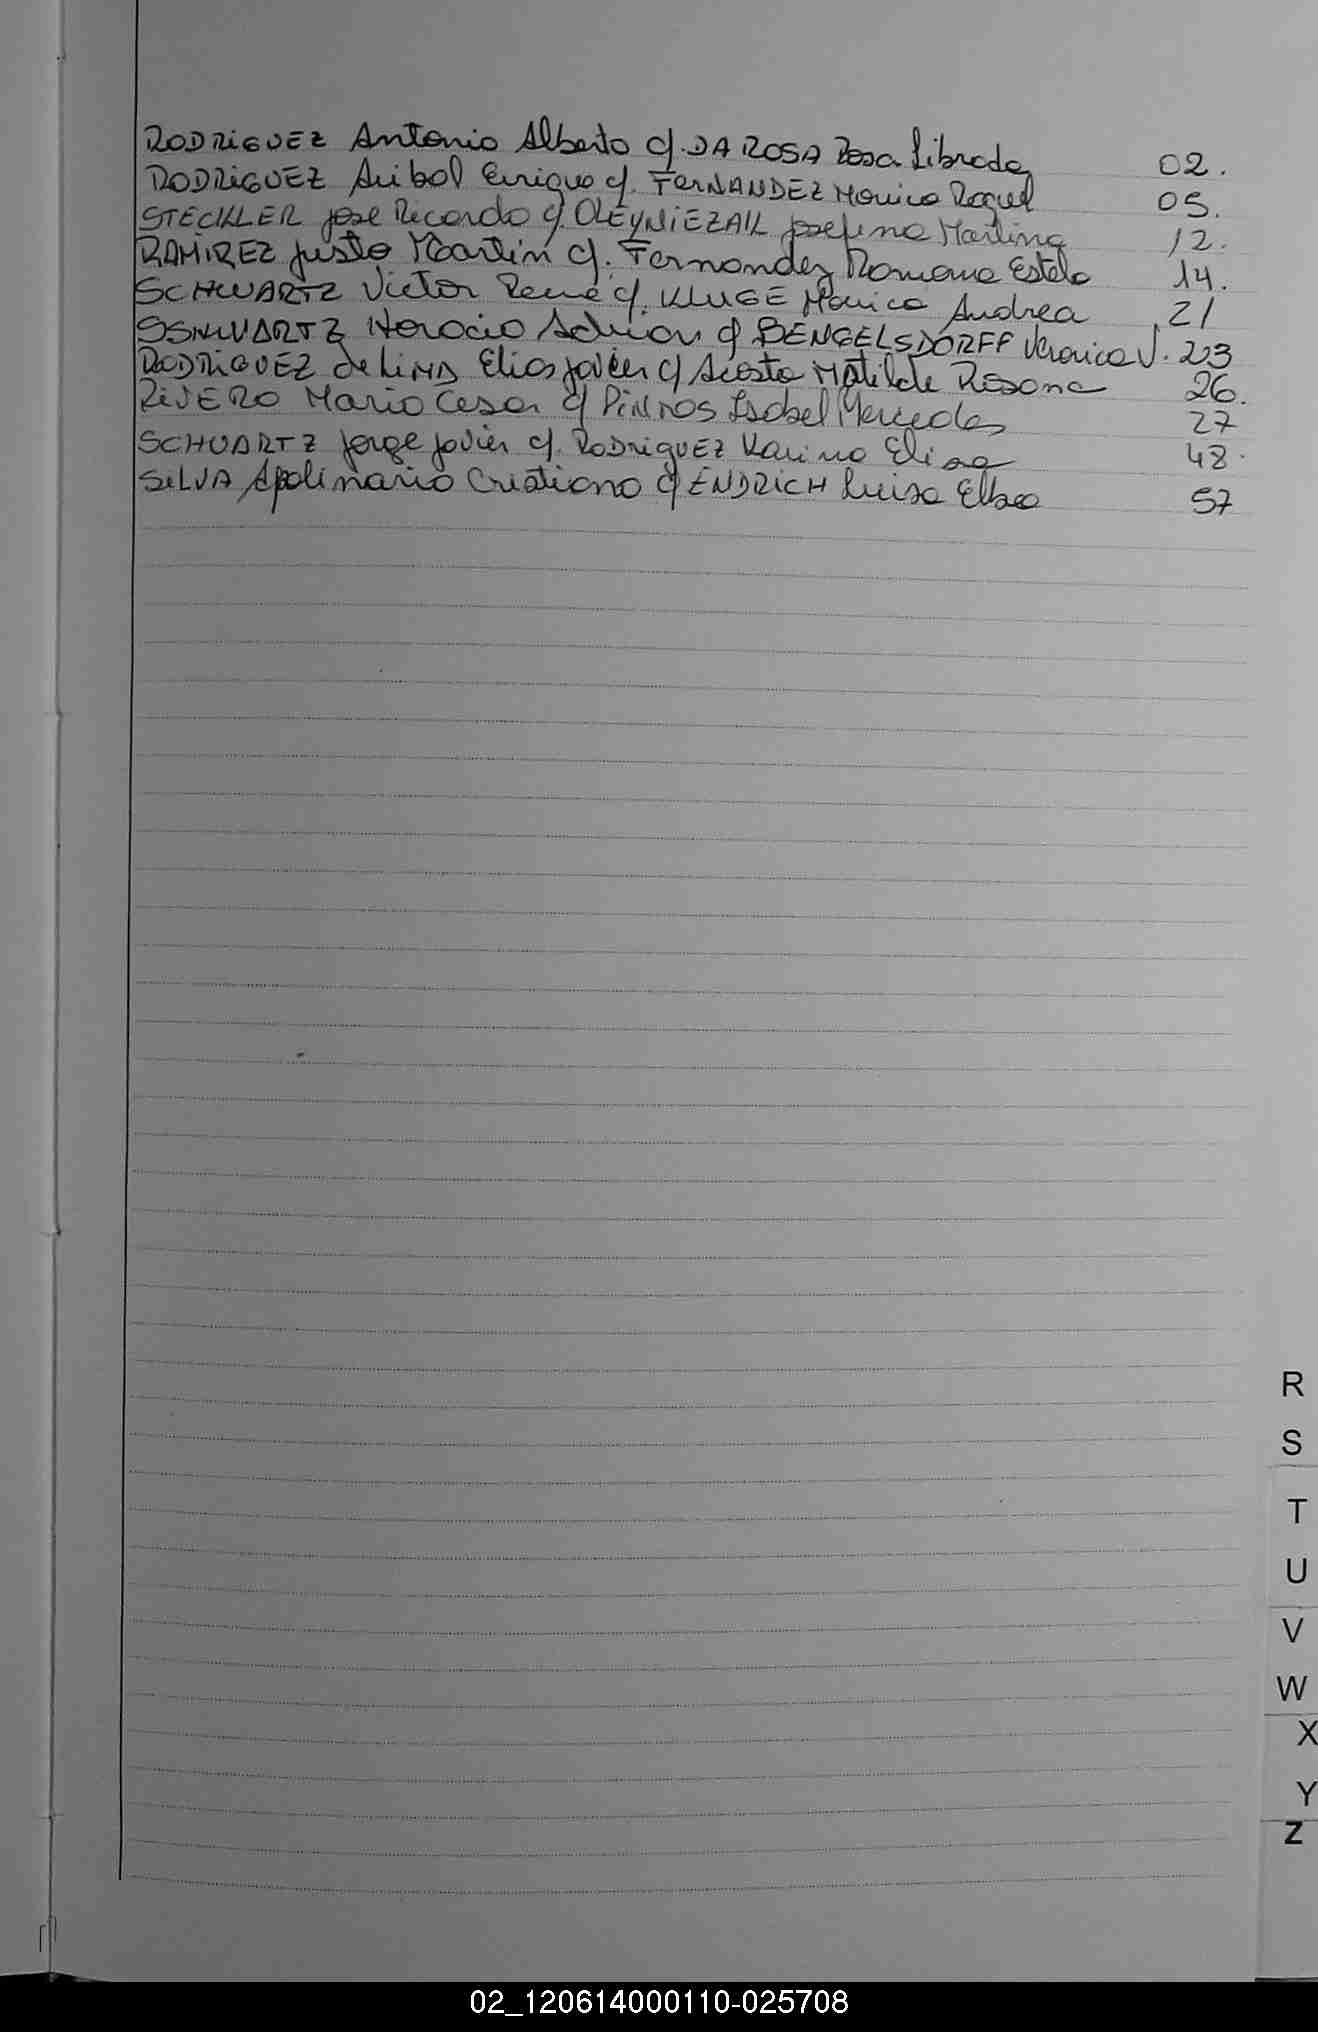 RODRIGUEZ Antonio Alberto c/. DA ROSA Rosa Librada 02.
RODRIGUEZ Anibal Enrique c/. FerNANDEZ Monica Raquel 05.
STECKLER jose Ricardo c/. OLEYNIEZAK josefina Martina 12.
RAMIREZ justo Martin c/. Fernandez Ramona Estela 14.
SCHWARTZ Victor René c/. KLUGE Monica Andrea 21
Horacio Adrian c/ BENGELSDORFF Veronica V. 23
RODRIGUEZ de LIMA Elias javier c/ Acosta Matilde Rosana 26.
RIVERO Mario Cesar c/ Isabel Mercedes 27
SCHUARTZ jorge javier c/. RODRIGUEZ Karina Elisa 48.
SILVA Apolinario Cristiano c/ ENDRICH Luisa Elba 57
R
S
T
U
V
W
X
Y
Z
02_120614000110-025708